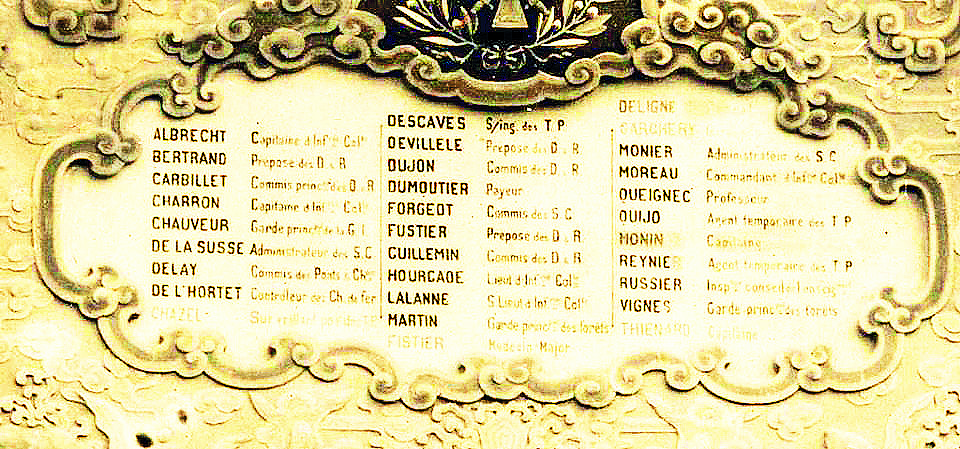 ALBRECHT Capitaine d'Inf^rie Col^le
BERTRAND Préposé des D & R
CARBILLET Commis princ^al des D & R
CHARRON Capitaine d'Inf^rie Col^le
CHAUVEUR Garde princ^al de la G. I.
DE LA SUSSE Administrateur des S. C.
DELAY Commis des Ponts & Ch^ées
DE L'HORTET Contrôleur des Ch. de fer
CHAZEL
DESCAVES S/ing. des T. P.
DEVILLELE Préposé des D & R
DUJON Commis des D & R
DUMOUTIER Payeur
FORGEOT Commis des S. C.
FUSTIER Préposé des D & R
GUILLEMIN Commis des D & R
HOURCADE Lieut d'Inf^rie Col^le
LALANNE S. Lieut d'Inf^rie Col^le
MARTIN Garde princ^al des forêts
FISTIER Médecin-Major
DELIGNE
GARCHERY
MONIER Administrateur des S. C.
MOREAU Commandant d'Inf^rie Col^le
QUEIGNEC Professeur
QUIJO Agent temporaire des T. P.
MONIN Capitaine
REYNIER Agent temporaire des T. P.
RUSSIER
VIGNES Garde princ^al des forêts
THIENARD Capitaine